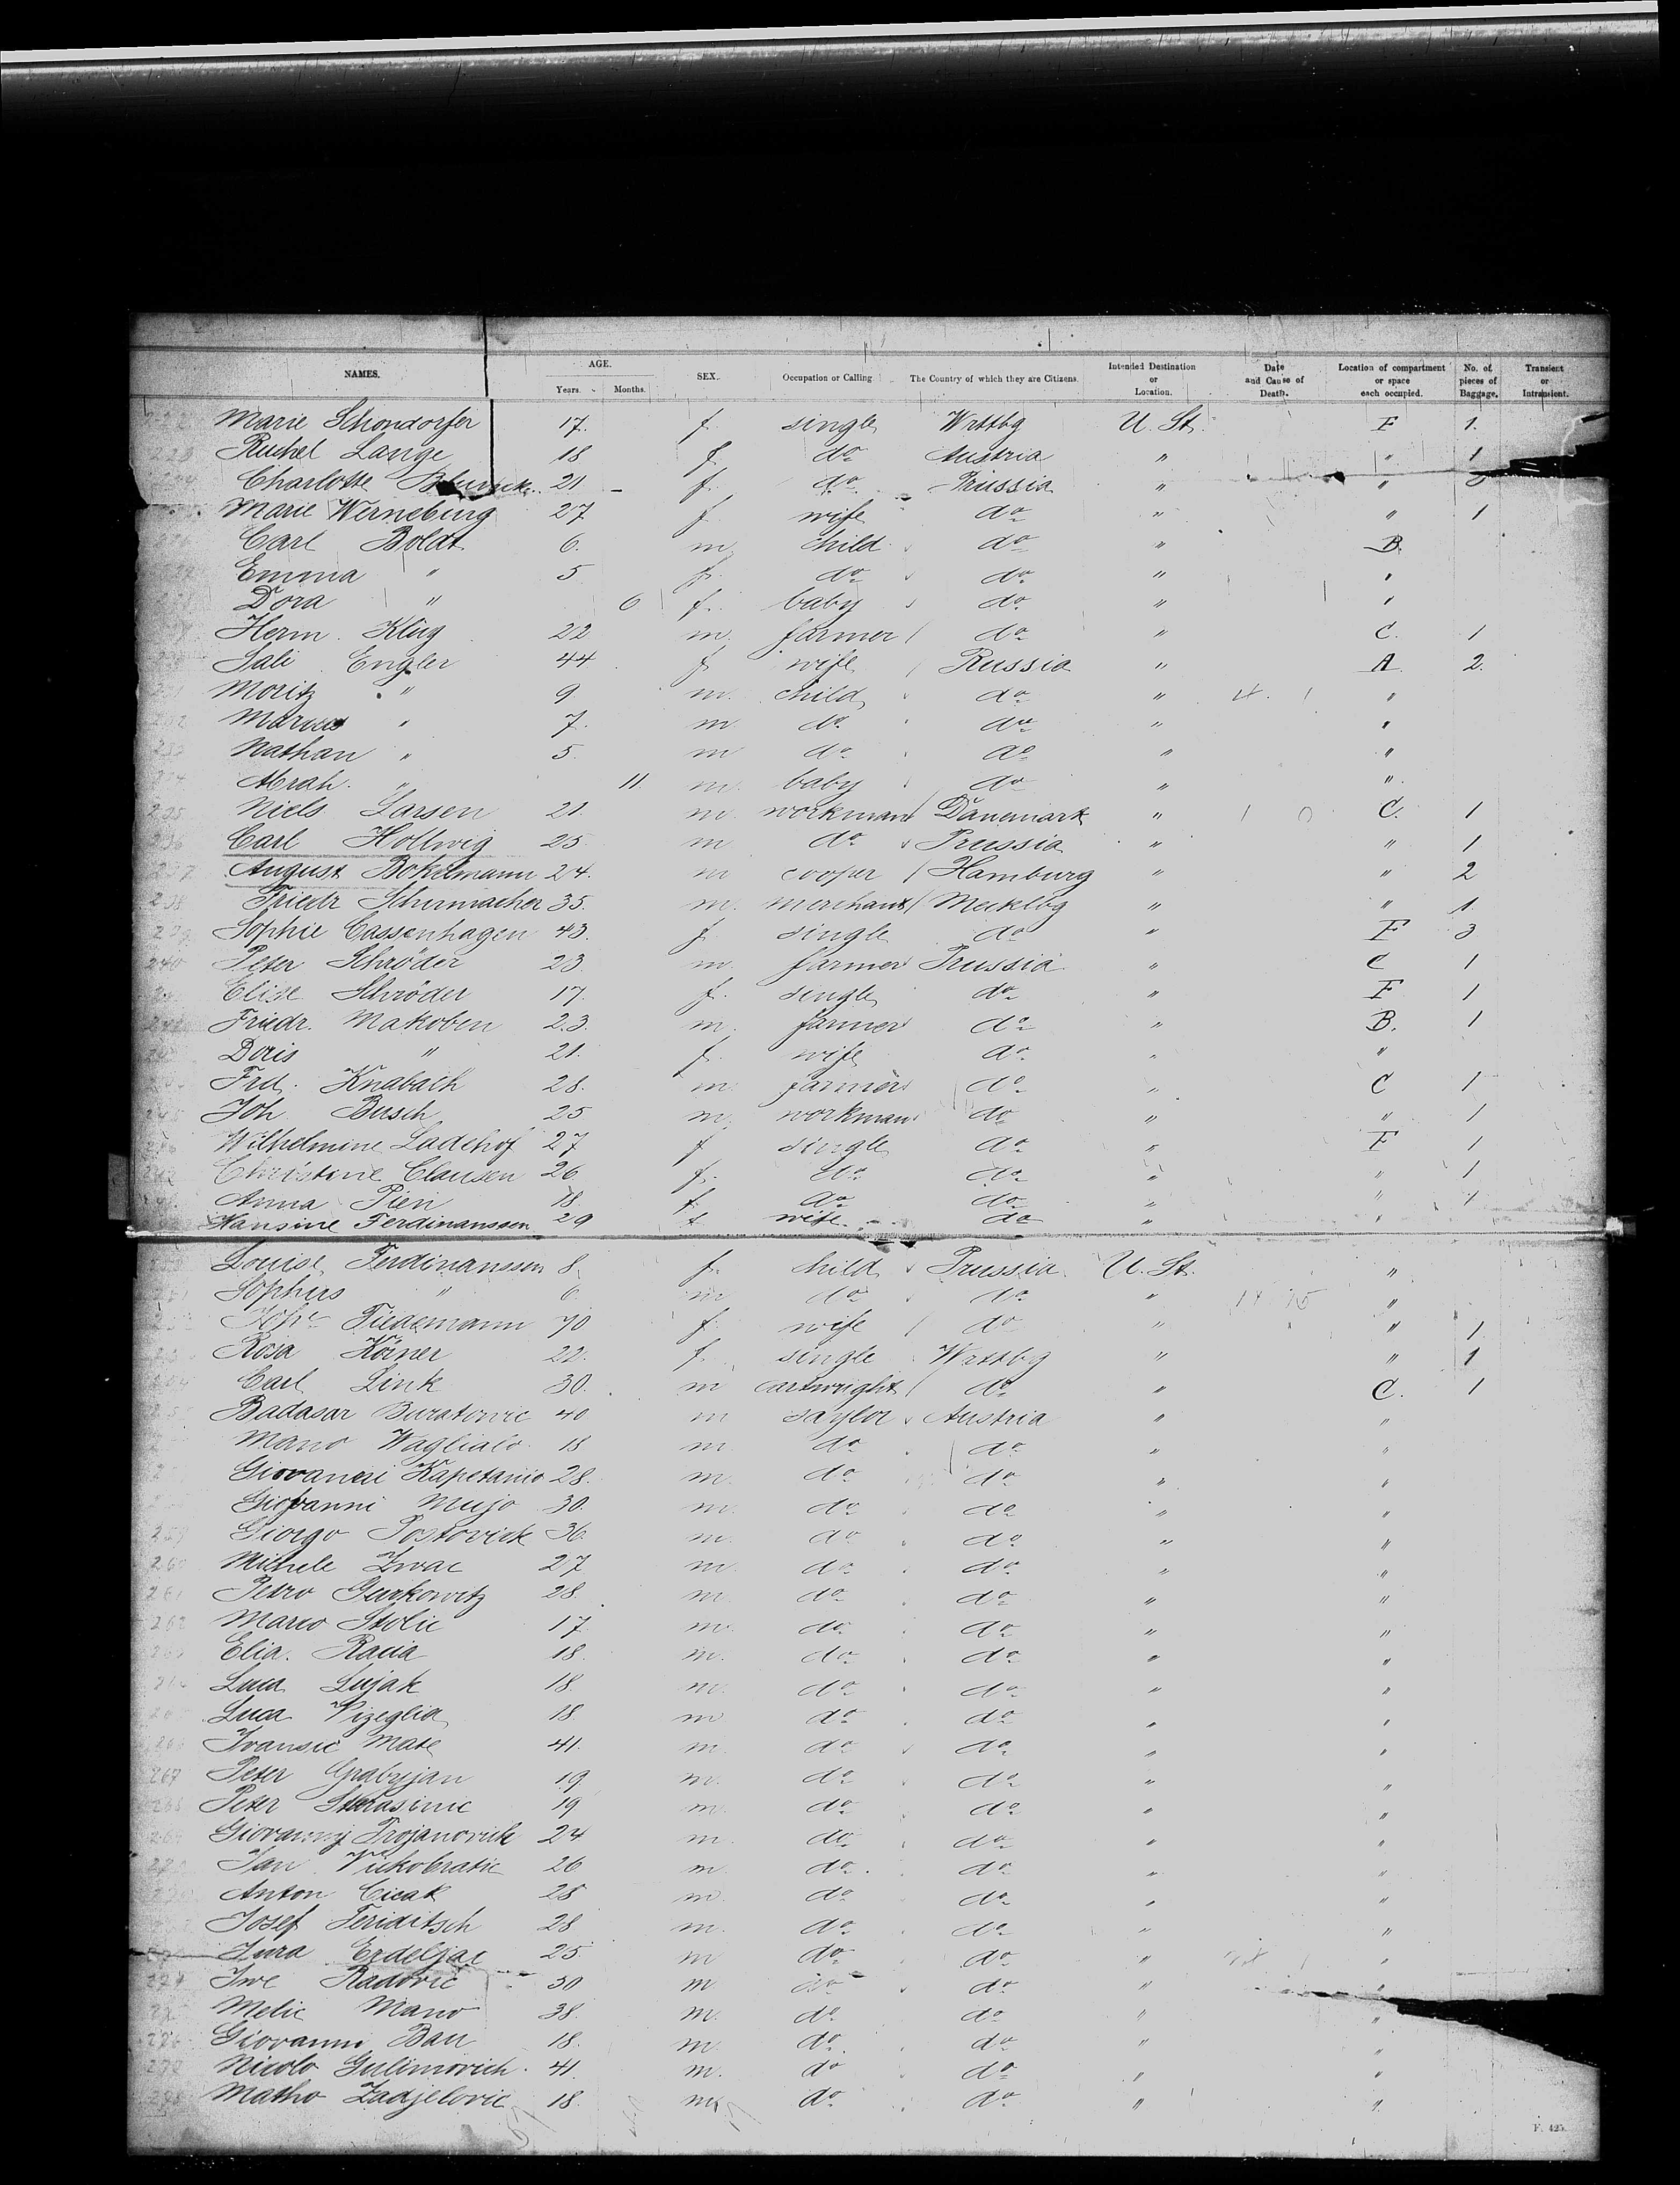 NAMES. AGE. Years. Months. SEX. Occupation or Calling The Country of which they are Citizens. Intended Destination or Location. Date and Cause of Death. Location of compartment or space each occupied. No. of pieces of Baggage. Transient or Intransient.
Marie Schondorfer 17. f. single Wrttbg U. St. F 1.
Ruchel Lange 18 f. do Austria " " 1
Charlotte 21 f. do Prussia " "
Marie Werneburg 27 f. wife do " " 1
Carl Boldt 6. m. child do " B.
Emma " 5 f. do do " "
Dora " 6 f. baby do " "
Herm. Klug 22 m. farmer do " C. 1
Sali Engler 44 f. wife Russia " A 2.
Moritz " 9. m. child do " "
Marcus " 7. m do do " "
Nathan " 5. m do do " "
Abrah. " 11. m. baby do " "
235 Niels Larsen 21. m. workman Danemark " C. 1
236 Carl Hollwig 25 m do Prussia " " 1
237 August Bokelmann 24. m cooper Hamburg " " 2
238 Friedr Schumacher 35. m. merchant Mecklbg " " 1.
239 Sophie Cassenhagen 43. f single do " F 3
240 Peter Schröder 23 m. farmer Prussia " C 1
Elise Schröder 17. f. single do " F 1
Friedr. Makoben 23. m. farmer do " B. 1
Doris " 21. f. wife do " "
Frd. Knabach 28. m. farmer do " C 1
245 Joh. Busch 25 m. workman do " " 1
Wilhelmine Ladehof 27 f single do " F 1
Christine Clausen 26 f. do do " " 1
Anna Pien 18 f. do do " " 1
Hansine Ferdinanssen 29 f wife do " "
Louise Ferdinanssen 8. f. child Prussia U. St. "
Sophus " 6 m do do " "
Tiedemann 70 f. wife do " " 1
Rosa Körner 22. f. single Wrttbg " " 1
Carl Link 30. m cartwright do " C. 1
Badasar Buratovic 40 m saylor Austria " "
Mano Waglialo 18 m do do " "
Giovanni Kapetanio 28. m. do do " "
Giovanni Mujo 30. m. do do " "
259 Giorgo Postovich 36. m. do do " "
260 Michele Zwac 27 m. do do " "
261 Petro Gurkowitz 28. m. do do " "
262 Marco Stolic 17 m. do do " "
Elia. Racia 18. m. do do " "
Luca Lujak 18. m. do do " "
Luca Vizeglia 18 m do do " "
266 Ivansic Mate 41. m. do do " "
267 Peter Grabrjan 19 m. do do " "
268 Peter Starasinic 19 m. do do " "
269 Giovanny Trojanovich 24 m. do do " "
Jan Vukobratic 26 m. do do " "
Anton Cicak 28 m. do do " "
Josef Feriditsch 28 m. do do " "
Jura Erdeljac 25 m do do " "
274 Iwe Radovic 30 m do do " "
Melic Mano 38. m. do do " "
276 Giovanni Ban 18. m. do do " "
277 Nicolo Gulimovich. 41. m. do do " "
278 Matho Zadjelovic 18. m do do " "
F. 425.